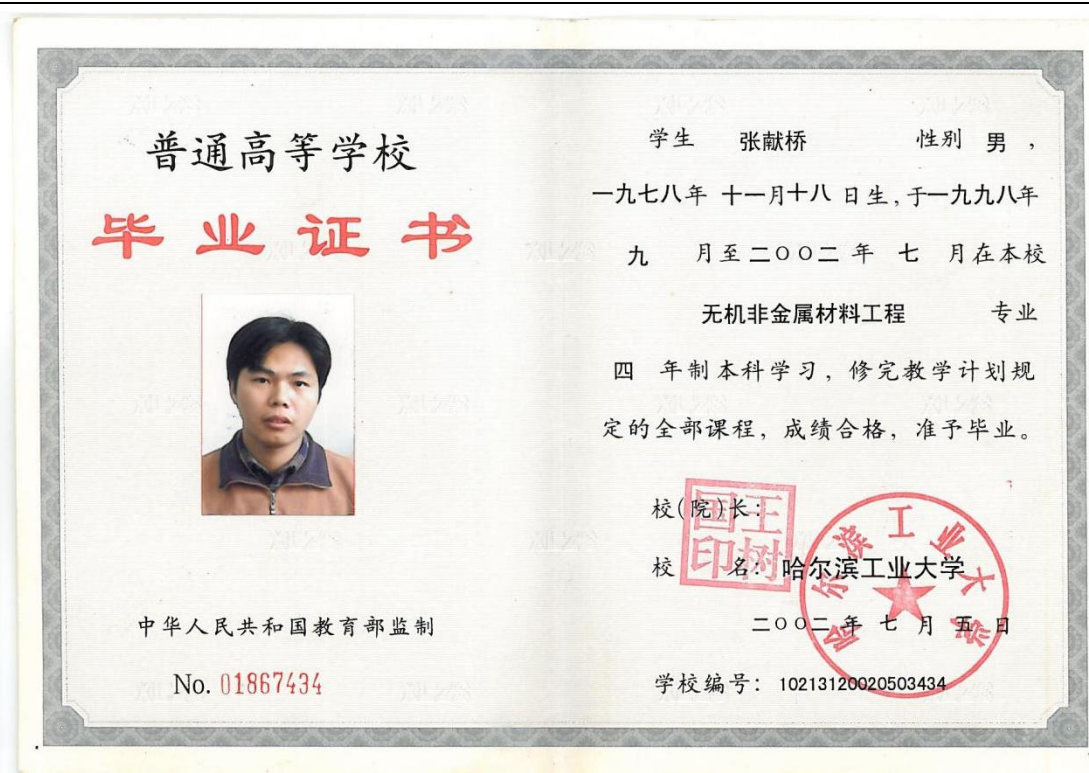 普通高等学校
毕业证书
中华人民共和国教育部监制
No. 01867434
学生 张献桥 性别 男，
一九七八年 十一月十八 日生，于一九九八年
九 月至二〇〇二 年 七 月在本校
无机非金属材料工程 专业
四 年制本科学习，修完教学计划规
定的全部课程，成绩合格，准予毕业。
校(院)长：
王树国印
校 名：哈尔滨工业大学
哈尔滨工业大学
二〇〇二年 七 月 五 日
学校编号：10213120020503434